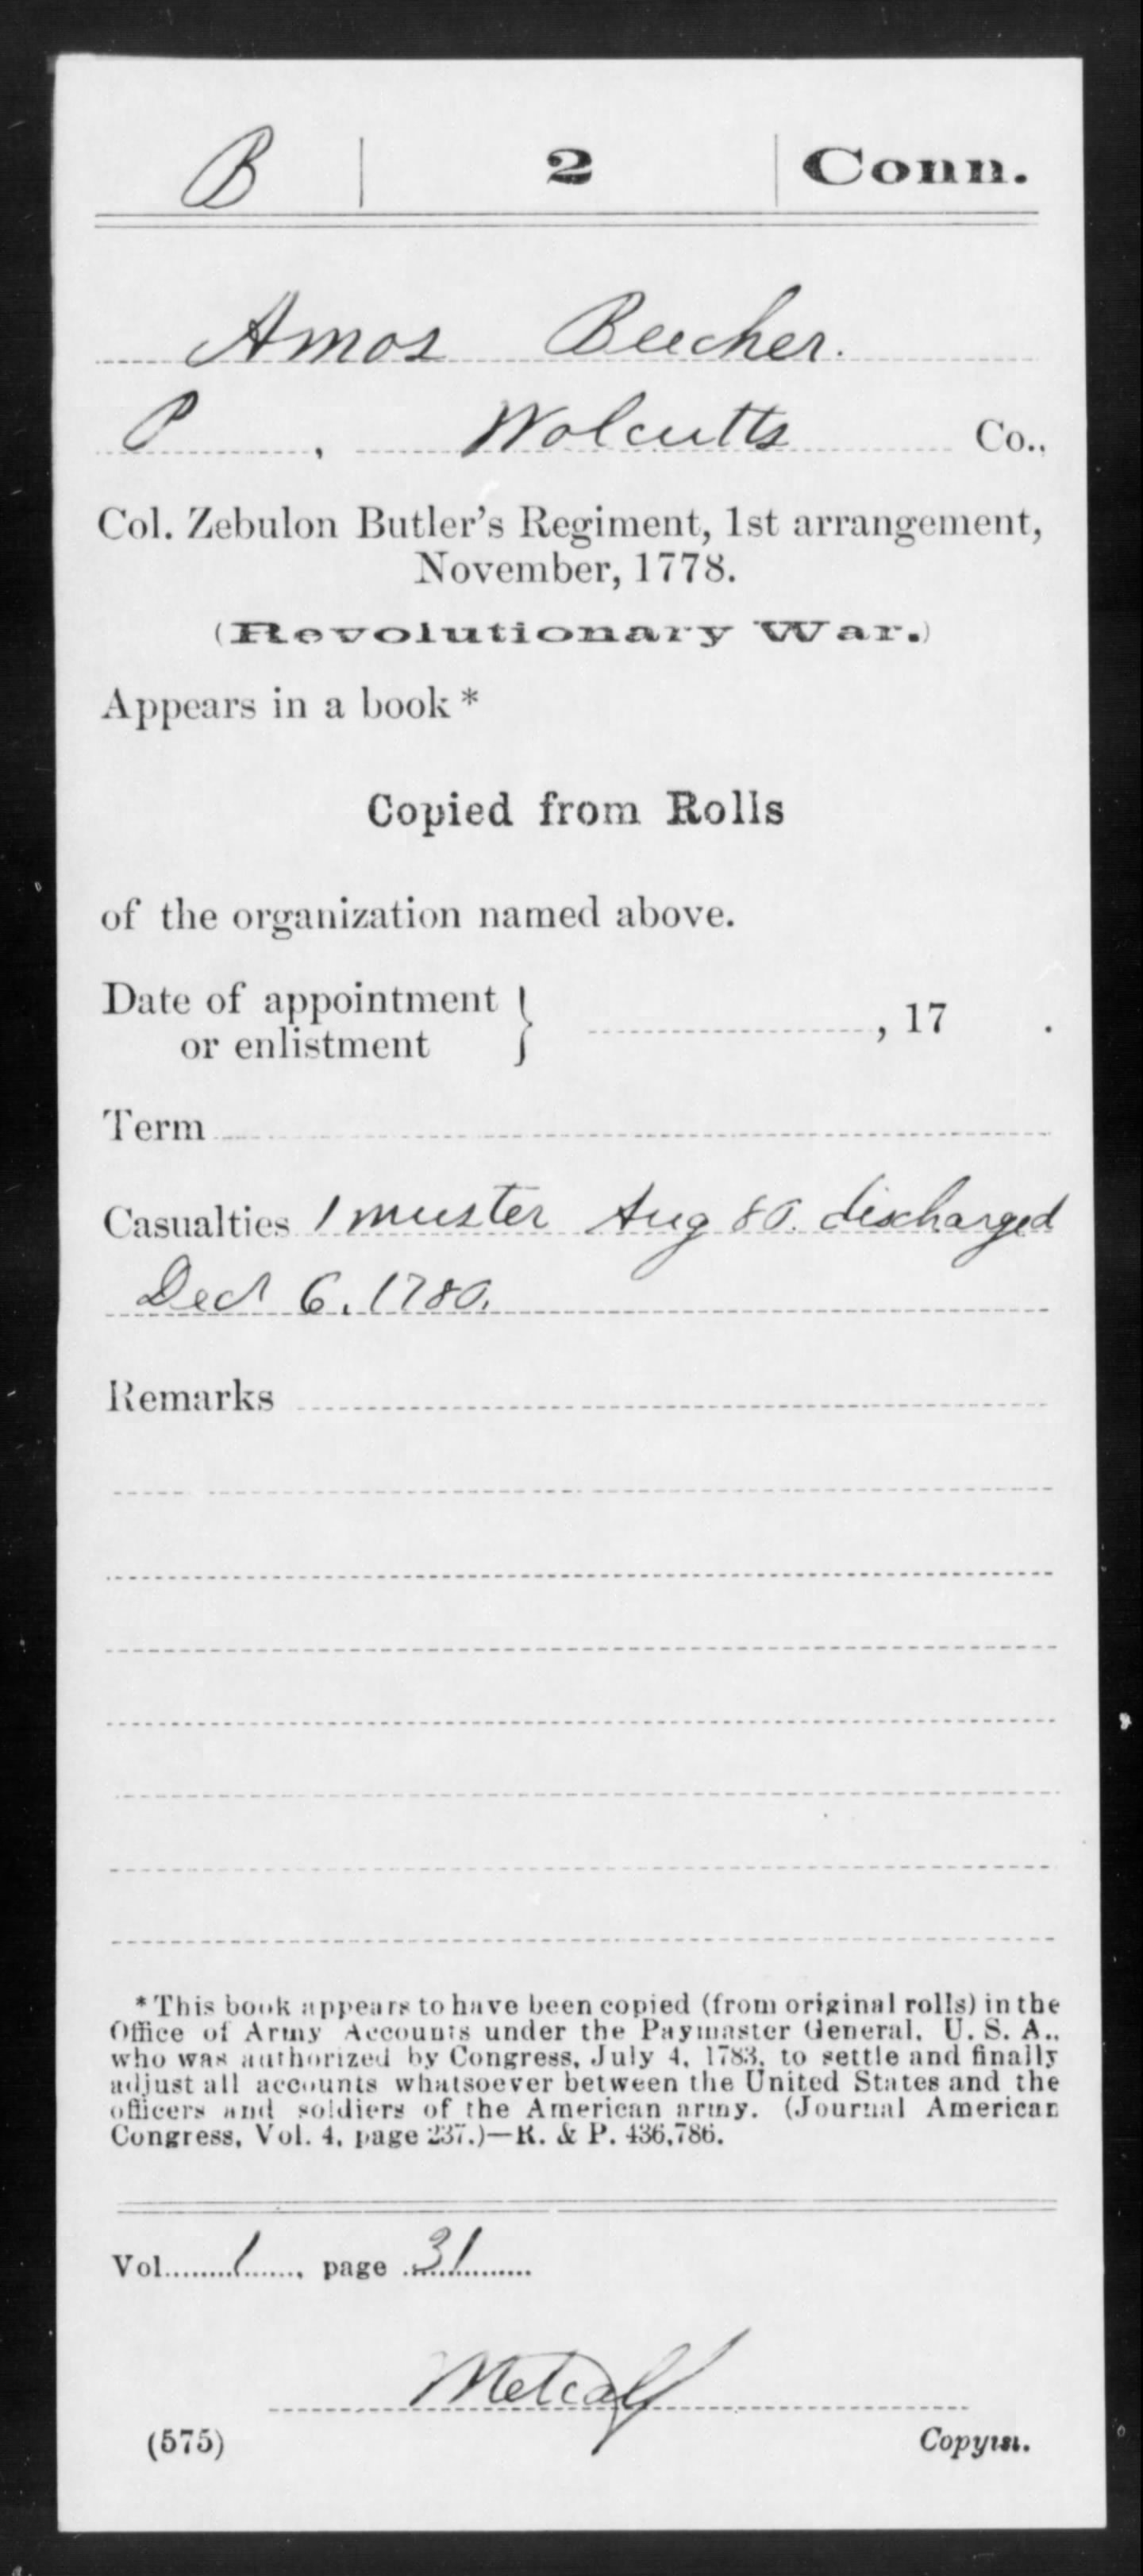 B | 2 | Conn.
Amos Beecher.
P , Wolcutts Co.,
Col. Zebulon Butler's Regiment, 1st arrangement,
November, 1778.
(Revolutionary War.)
Appears in a book *
Copied from Rolls
of the organization named above.
Date of appointment
or enlistment } , 17 .
Term
Casualties 1 muster Aug 80. discharged
Decr 6. 1780.
Remarks
* This book appears to have been copied (from original rolls) in the
Office of Army Accounts under the Paymaster General, U. S. A.,
who was authorized by Congress, July 4, 1783, to settle and finally
adjust all accounts whatsoever between the United States and the
officers and soldiers of the American army. (Journal American
Congress, Vol. 4, page 237.)—R. & P. 436,786.
Vol. 1, page 31
Metcalf
(575) Copyist.